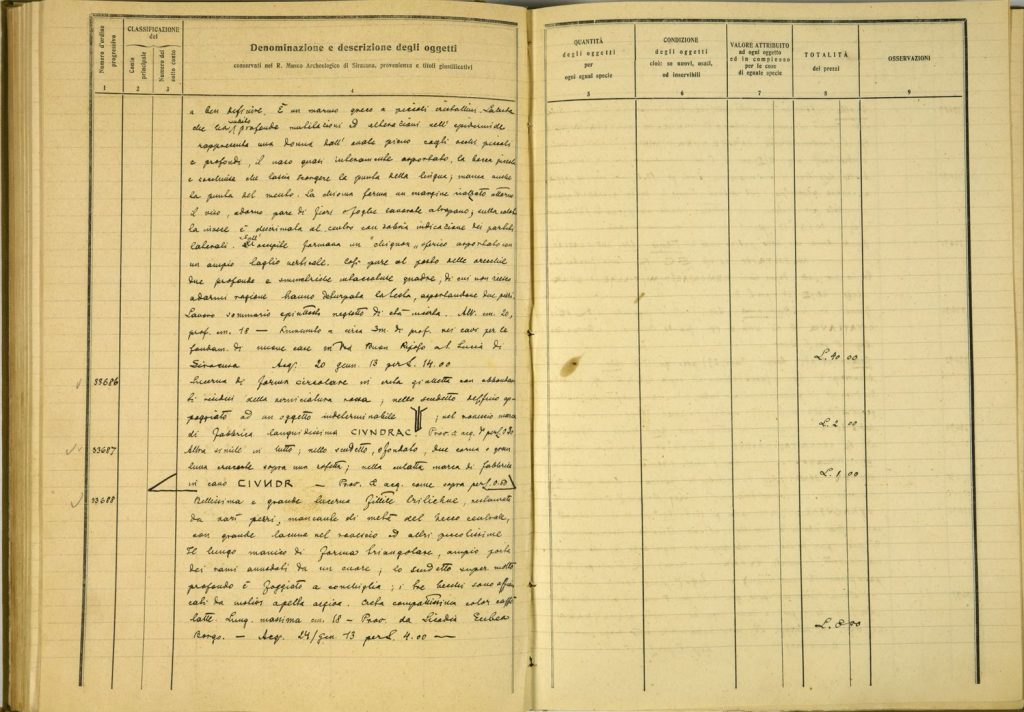 Numero d'ordine progressivo
CLASSIFICAZIONE del
Conto principale
Numero del sotto conto
Denominazione e descrizione degli oggetti
conservati nel R. Museo Archeologico di Siracusa, provenienza e titoli giustificativi
1 2 3 4
QUANTITÀ degli oggetti per ogni egual specie
CONDIZIONE degli oggetti cioè: se nuovi, usati, od inservibili
VALORE ATTRIBUITO ad ogni oggetto ed in complesso per le cose di eguale specie
TOTALITÀ dei prezzi
OSSERVAZIONI
5 6 7 8 9
a ben definire. È un marmo greco a piccoli cristallini. La testa
che profonde mutilazioni ed alterazioni nell'epidermide
rappresenta una donna dall'ovale pieno cogli occhi piccoli
e profondi, il naso quasi interamente asportato, la bocca piccola
e che lascia scorgere la punta della lingua; manca anche
la punta del mento. La chioma forma un margine rialzato attorno
il viso, adorno pare di fiori o foglie lavorate a trapano; sulla calotta
la è discriminata al centro con sobria indicazione dei partiti
laterali. Dall' occipite formava un "chignon" sferico asportato con
un ampio taglio verticale. Così pure al posto delle orecchie
due profonde e simmetriche intaccature quadre, di cui non riesco
a darmi ragione hanno deturpata la testa, asportandone due pezzi.
Lavoro sommario e piuttosto negletto di età incerta. Alt. cm. 20,
prof. cm. 18 — Rinvenuto a circa 3m. di prof. nei cavi per le
fondam. di nuove case in Buon Riposo a S. Lucia di
Siracusa Acq. 20 genn. 13 per L. 14.00
L. 40 00
33686
Lucerna di forma circolare in creta gialletta con abbondan
ti residui della verniciatura rossa; nello scudetto delfino ap
poggiato ad un oggetto indeterminabile ; nel rovescio marca
di fabbrica CIVNDRAC. Prov. e acq. per L. 0.20
L. 2 00
33687
Altra simile in tutto; nello scudetto, sfondato, due corna o gran
luna crescente sopra una rosetta; nella culatta marca di fabbrica
in cavo CIVNDR — Prov. e acq. come sopra per L. 0.50
L. 1 00
33688
Bellissima e grande lucerna fittile trilichne, reclamata
da vari pezzi, mancante di metà del becco centrale,
con grande lacuna nel rovescio ed altri piccolissime
Il lungo manico di forma triangolare, ampio porta
dei rami annodati da un cuore; lo scudetto super. molto
profondo è foggiato a conchiglia; i tre becchi sono affian
cati da motivi a pelta . Creta compattissima color caffè
latte. Lung. massima cm. 18 — Prov. da Licodia Eubea
Borgo. — Acq. 24/Gen 13 per L. 4.00 —
L. 8 00